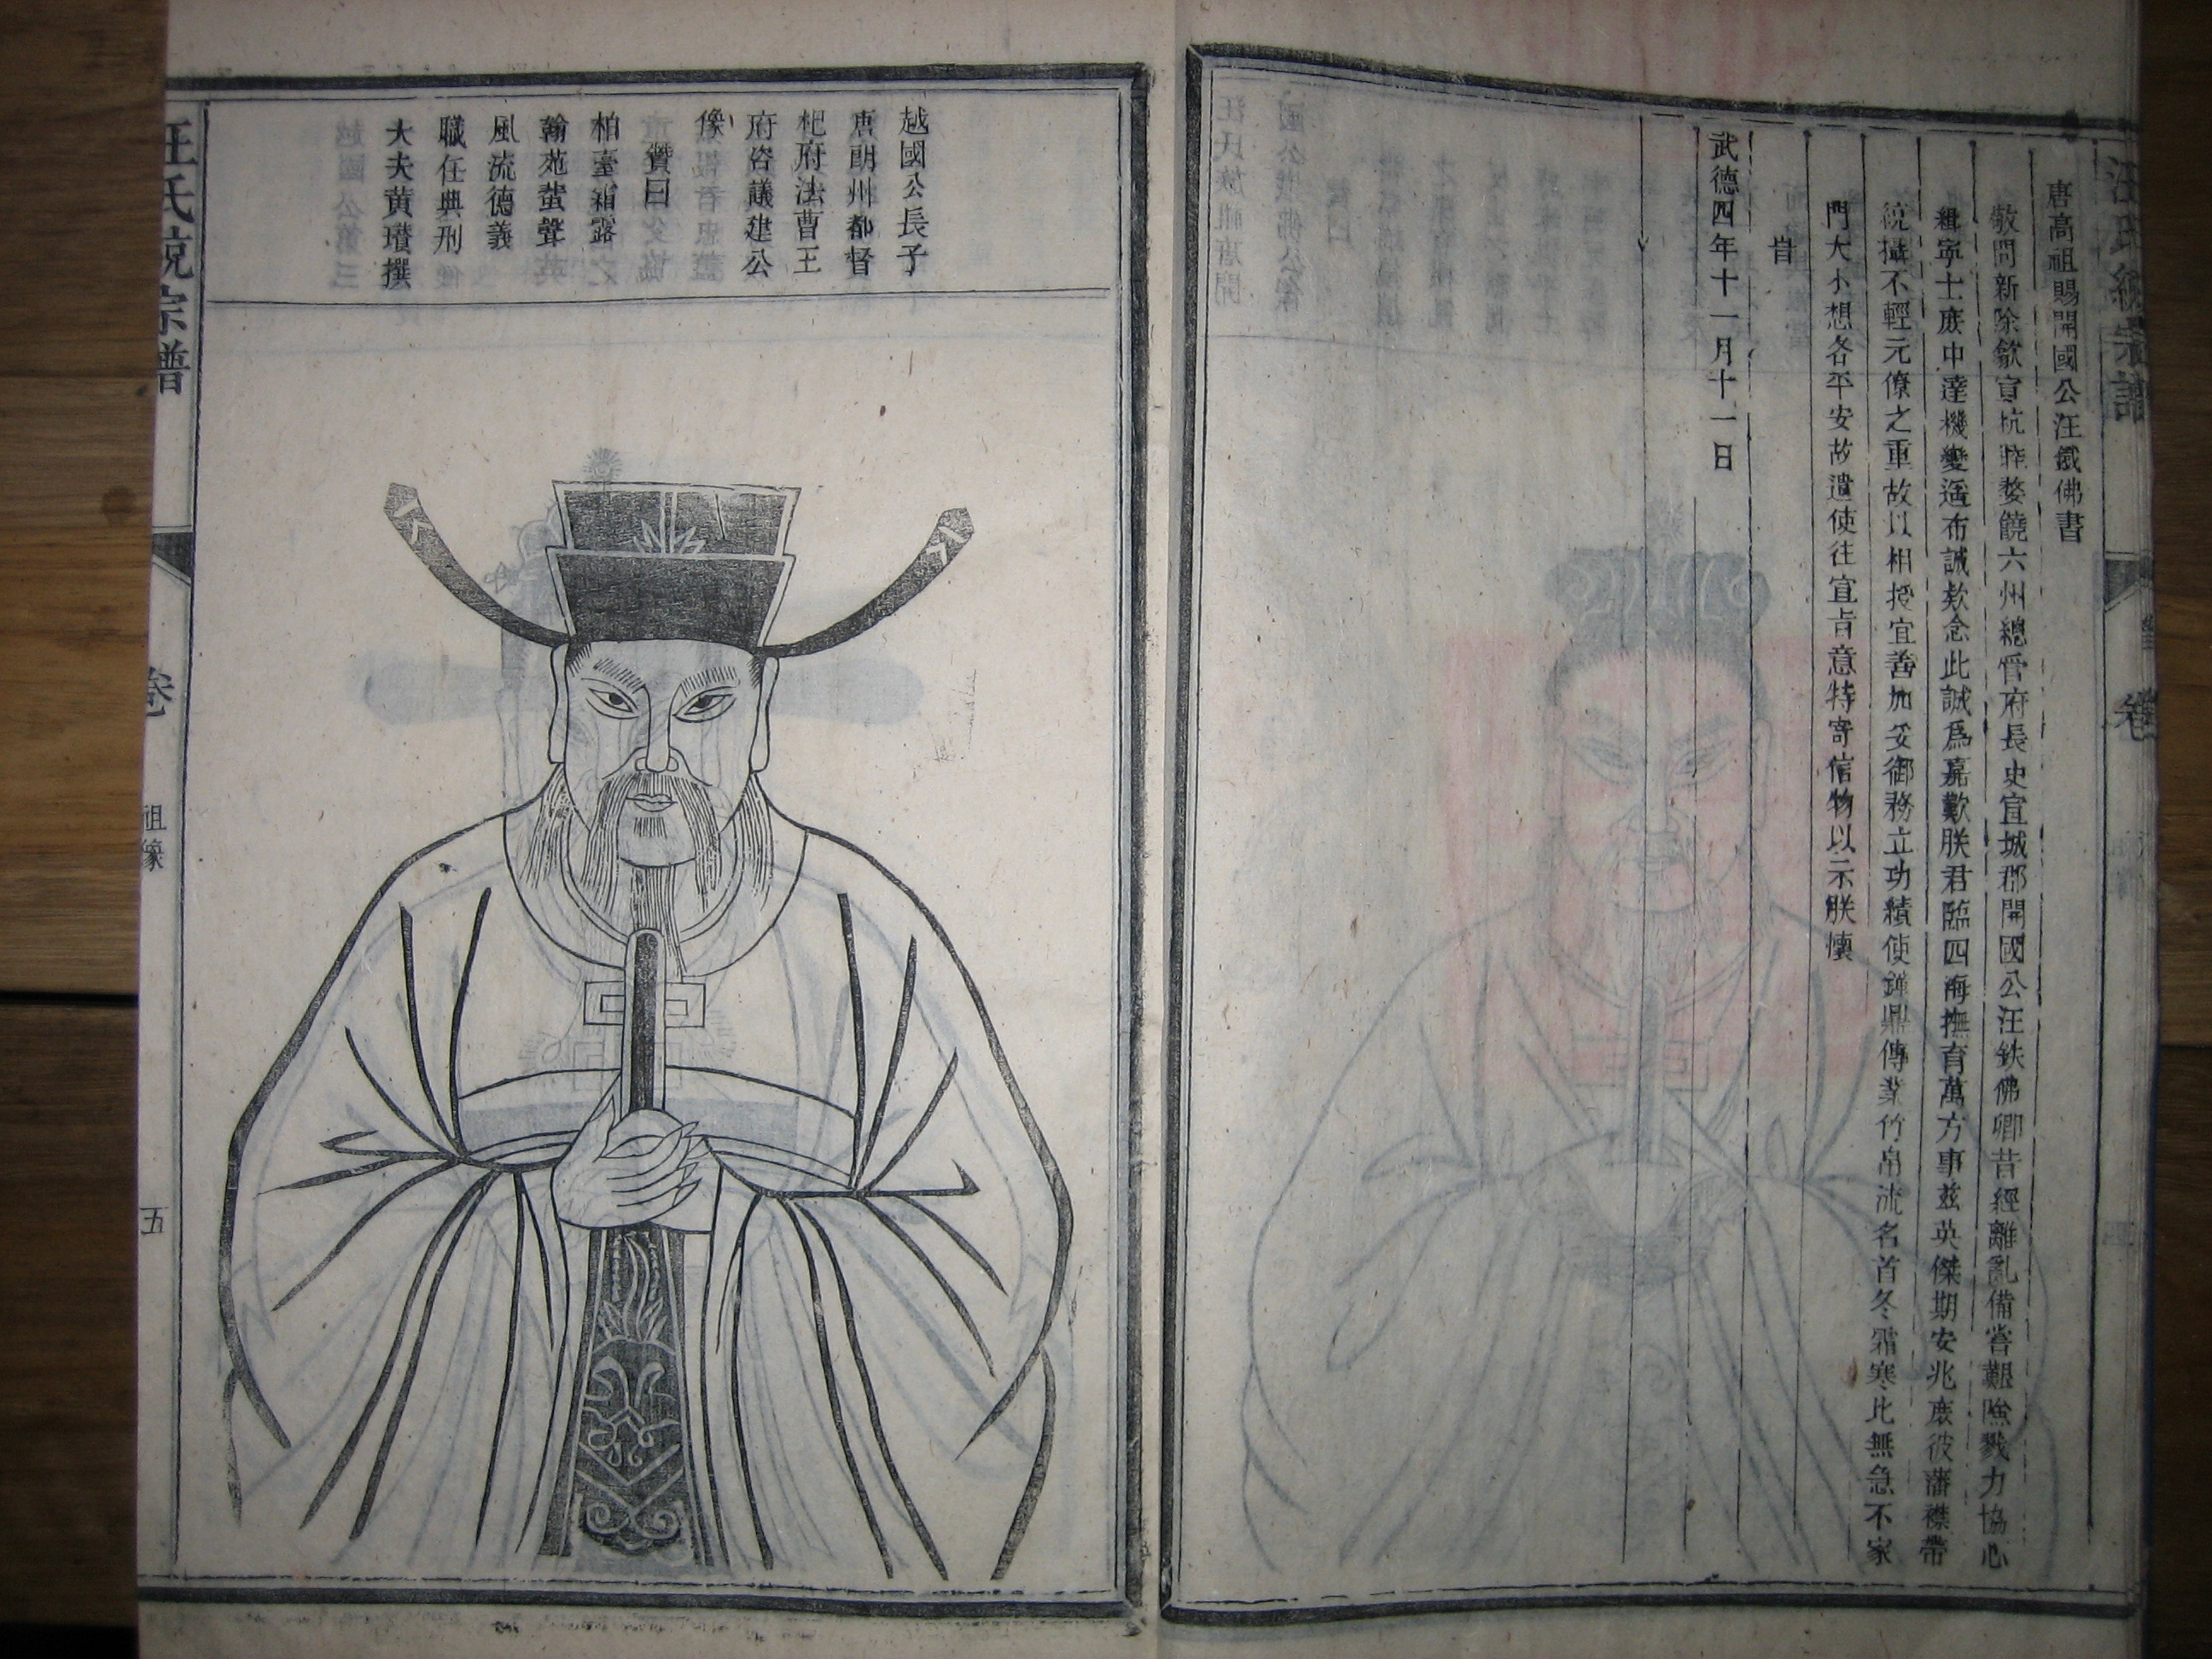 唐高祖賜開國公汪鉄佛書
敬問新除歙宣杭睦婺饒六州總管府長史宣城郡開國公汪鉄佛卿昔經離亂備嘗艱險戮力協心
緝寧士庶申達機變遥布誠欵念此誠爲嘉歎朕君臨四海撫育萬方事兹英傑期安兆庶彼蕃襟帶
統攝不輕元僚之重故以相授宜善加妥御務止功績使鐘鼎傳業竹帛流名首冬霜寒比無急不家
門大小想各平安故遣使往宣旨意特寄信物以示朕懷
旨
武德四年十一月十一日
越國公長子
唐朗州都督
杞府法曹王
府咨議建公
像
贊曰
柏臺霜露
翰苑蜚聲
風流德義
職任典刑
大夫黃瓚撰
汪氏統宗譜
卷
祖像
五